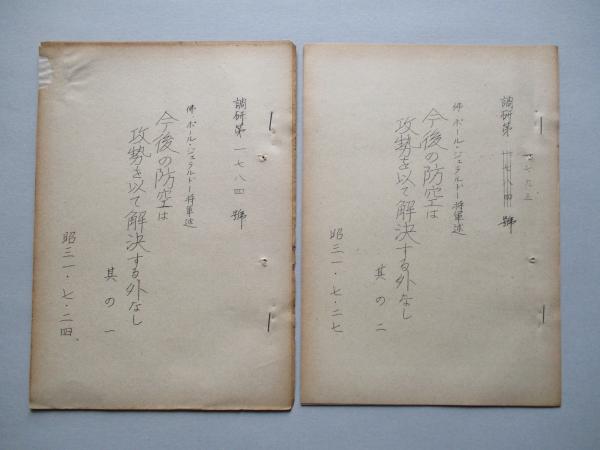 調研第一七八四號
佛 ポール・ジェラルドー將軍述
今後の防空は
攻勢を以て解決する外なし
其の一
昭三一・七・二四、
調研第一七八四 號
一七九三
佛 ポール・ジェラルドー將軍述
今後の防空は
攻勢を以て解決する外なし
其の二
昭三一・七・二七